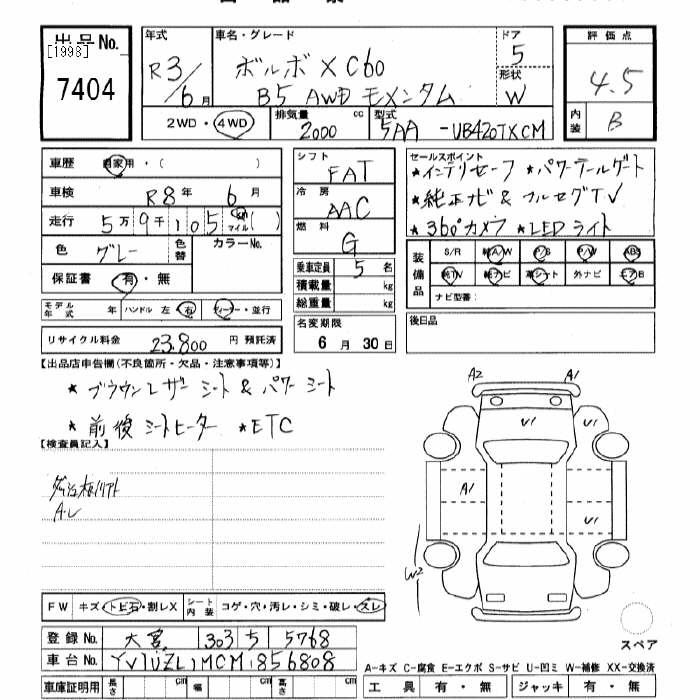 出品No.
[1998]
7404
年式 R3/6月
車名・グレード ボルボXC60
B5 AWD モメンタム
ドア 5
形状 W
評価点 4.5
内装 B
2WD・4WD 排気量 2000 cc 型式 5AA -UB420TXCM
車歴 自家用・( )
車検 R8年 6月
走行 5万9千105 km マイル ( )
色 グレー 色替 カラーNo.
保証書 有・無
モデル年式 年 ハンドル 左 右 ディーラー・並行
リサイクル料金 23,800 円 預託済
シフト FAT
冷房 AAC
燃料 G
乗車定員 5 名
積載量 kg
総重量 kg
名変期限
6 月 30日
セールスポイント
★インテリセーフ ★パワーテールゲート
★純正ナビ & フルセグTV
★360°カメラ ★LEDライト
装備品 S/R 純A/W P/S P/W ABS
純TV 純ナビ 革シート 外ナビ エアB
ナビ型番:
後日品
【出品店申告欄(不良箇所・欠品・注意事項等)】
★ブラウンレザーシート & パワーシート
★前後シートヒーター ★ETC
【検査員記入】
A・レ
A2 A1
U1 U1
A1
U1
W2
スペア
FW キズ・トビ石・割レX シート内装 コゲ・穴・汚レ・シミ・破レ・スレ
登録No. 大宮 303 ち 5768
車台No. YV1UZL1MCM1856808
車庫証明用 長さ cm 幅 cm 高さ cm
A-キズ C-腐食 E-エクボ S-サビ U-凹ミ W-補修 XX-交換済
工具 有・無 ジャッキ 有・無